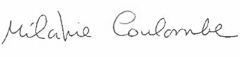 Mélanie Coulombe